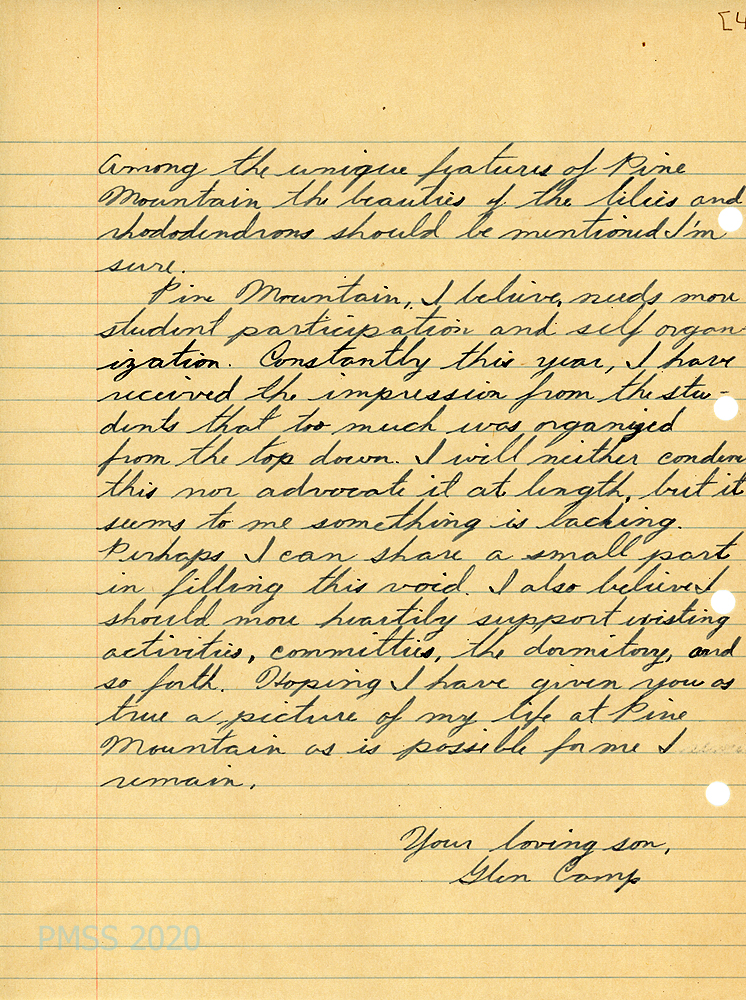 [4
Among the unique features of Pine
Mountain the beauties of the lilies and
rhododendrons should be mentioned I'm
sure.
Pine Mountain, I believe, needs more
student participation and self organ-
ization. Constantly this year, I have
received the impression from the stu-
dents that too much was organized
from the top down. I will neither condem
this nor advocate it at length, but it
seems to me something is lacking.
Perhaps I can share a small part
in filling this void. I also believe I
should more heartily support existing
activities, committies, the dormitory, and
so forth. Hoping I have given you as
true a picture of my life at Pine
Mountain as is possible for me I
remain,
Your loving son,
Glen Camp
PMSS 2020